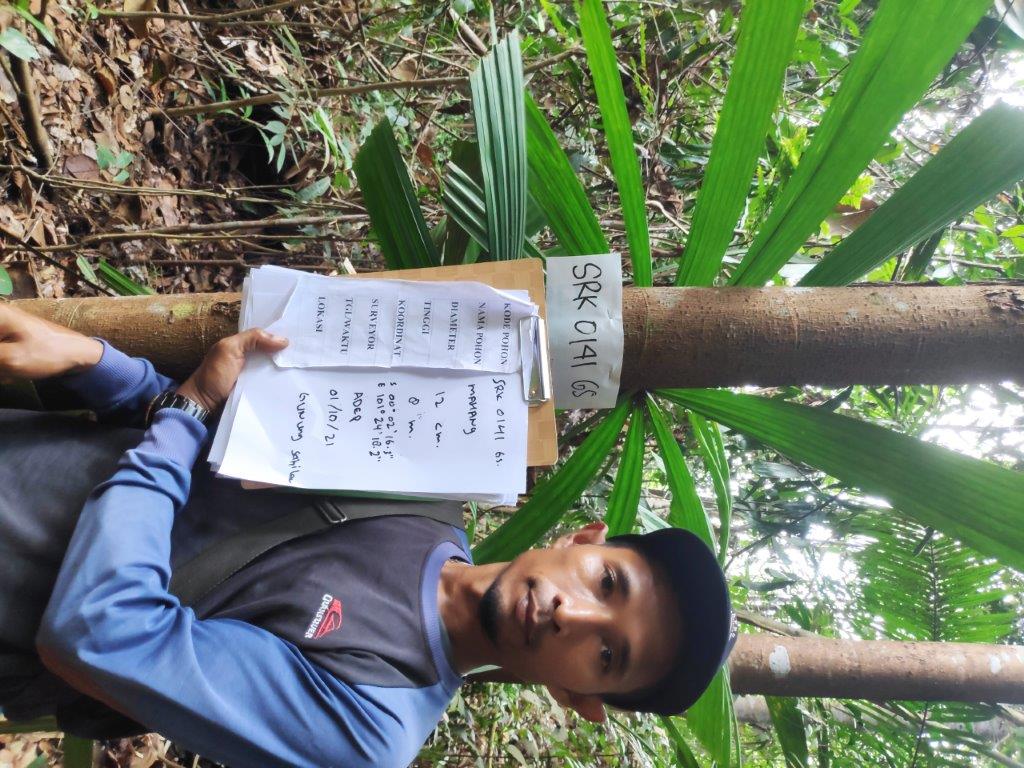 SRK 0141 GS
KODE POHON SRK 0141 GS.
NAMA POHON MAHANG
DIAMETER 12 cm.
TINGGI 8 m.
KOORDINAT S 00° 02' 16.3"
E 101° 24' 18.2"
SURVEYOR ADEP
TGL/WAKTU 01/10/21
LOKASI GUNUNG Sahilan
QUIKSILVER